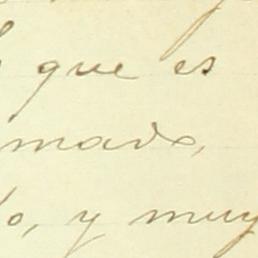 que es
mado,
o, y muy